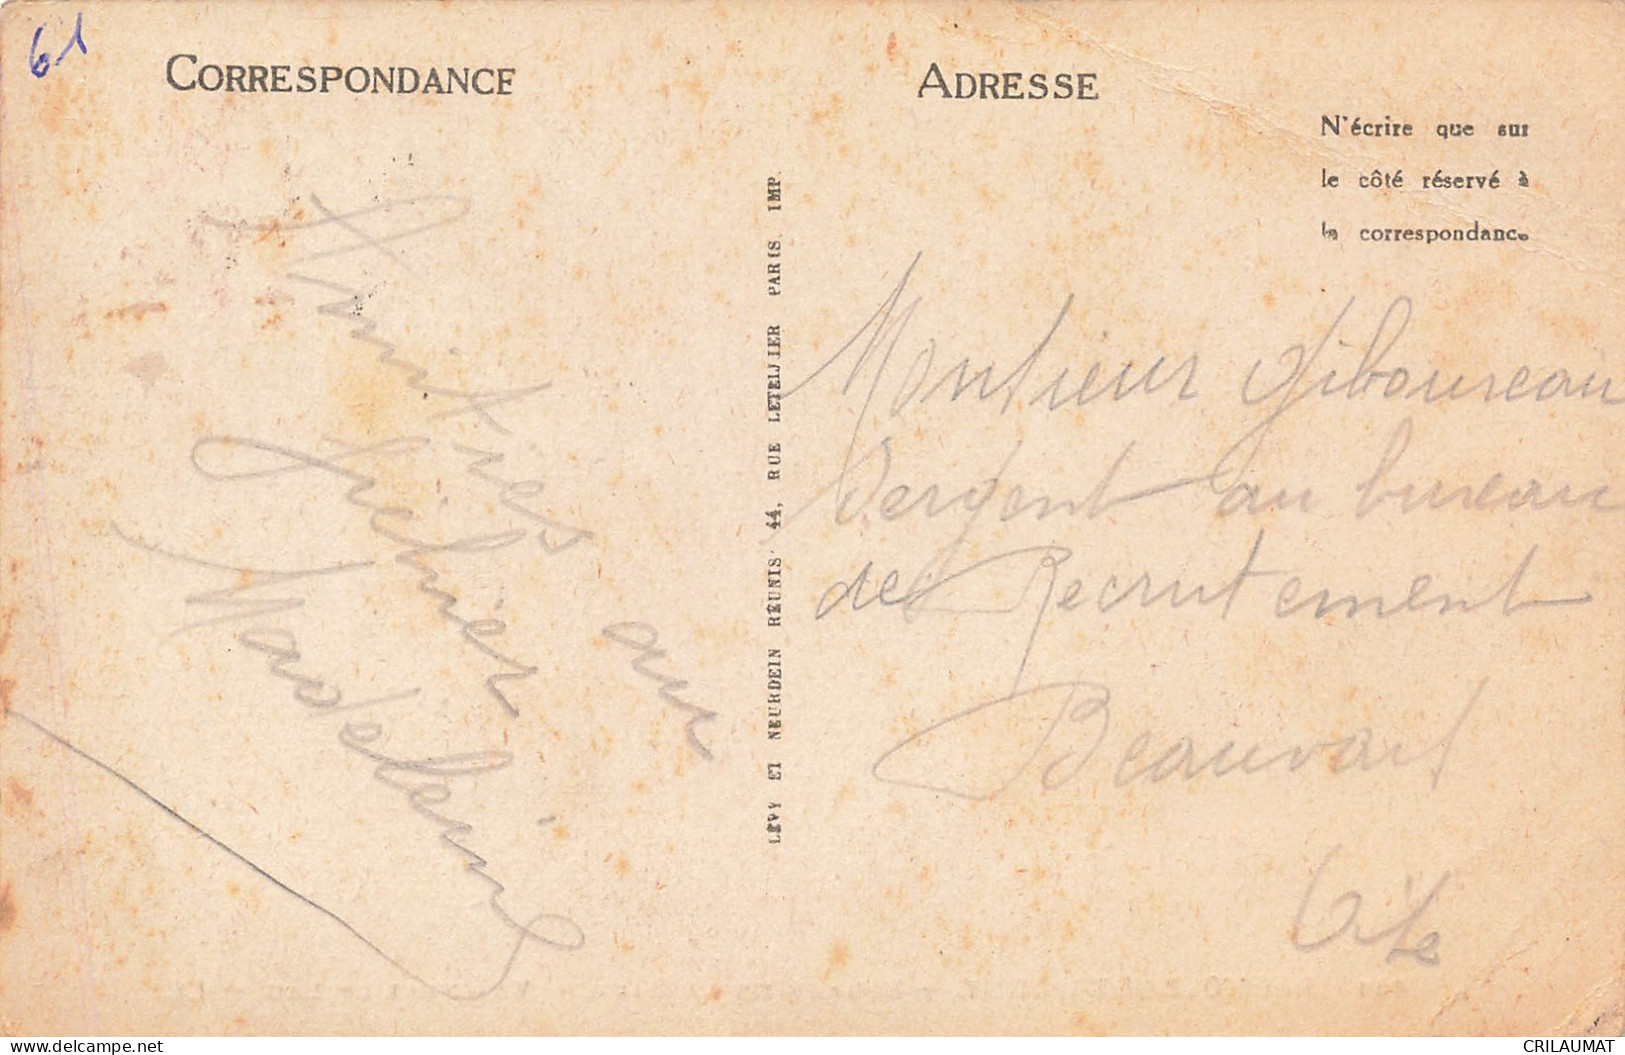 61
CORRESPONDANCE
Amitiés au
Madeleine
LÉVY ET NEURDEIN RÉUNIS 44, RUE LETELLIER PARIS. IMP.
ADRESSE
N'écrire que sur
le côté réservé à
la correspondance
Monsieur Giboureau
Sergent au bureau
de Recrutement
Beauvais
CRILAUMAT